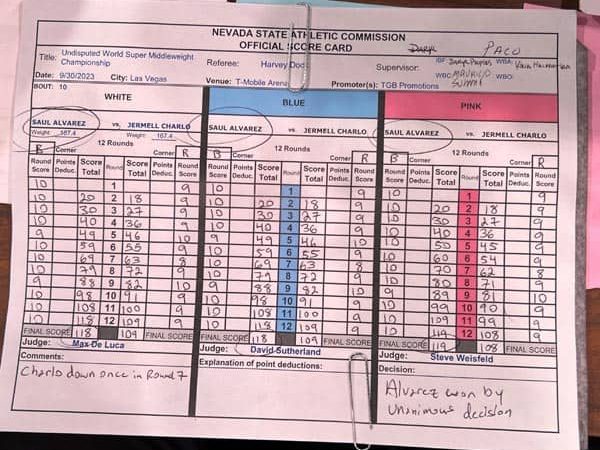 NEVADA STATE ATHLETIC COMMISSION
OFFICIAL SCORE CARD
PACO
Title: Undisputed World Super Middleweight Championship
Referee: Harvey Doc
Supervisor:
IBF
WBA:
WBC: MAURICIO SULAIMAN
WBO:
Date: 9/30/2023 City: Las Vegas
Venue: T-Mobile Arena
Promoter(s): TGB Promotions
BOUT: 10
WHITE BLUE PINK
SAUL ALVAREZ vs. JERMELL CHARLO SAUL ALVAREZ vs. JERMELL CHARLO SAUL ALVAREZ vs. JERMELL CHARLO
Weight: 167.4 Weight: 167.4
12 Rounds 12 Rounds 12 Rounds
B Corner Corner R B Corner Corner R B Corner Corner R
Round Score Points Deduc. Score Total Round Score Total Points Deduc. Round Score Round Score Points Deduc. Score Total Round Score Total Points Deduc. Round Score Round Score Points Deduc. Score Total Round Score Total Points Deduc. Round Score
10 1 9 10 1 9 10 1 9
10 20 2 18 9 10 20 2 18 9 10 20 2 18 9
10 30 3 27 9 10 30 3 27 9 10 30 3 27 9
10 40 4 36 9 10 40 4 36 9 10 40 4 36 9
9 49 5 46 10 9 49 5 46 10 10 50 5 45 9
10 59 6 55 9 10 59 6 55 9 10 60 6 54 9
10 69 7 63 8 10 69 7 63 8 10 70 7 62 8
10 79 8 72 9 10 79 8 72 9 10 80 8 71 9
9 88 9 82 10 9 88 9 82 10 9 89 9 81 10
10 98 10 91 9 10 98 10 91 9 10 99 10 90 9
10 108 11 100 9 10 108 11 100 9 10 109 11 99 9
10 118 12 109 9 10 118 12 109 9 10 119 12 108 9
FINAL SCORE 118 109 FINAL SCORE FINAL SCORE 118 109 FINAL SCORE FINAL SCORE 119 108 FINAL SCORE
Judge: Max De Luca Judge: David Sutherland Judge: Steve Weisfeld
Comments: Explanation of point deductions: Decision:
Charlo down once in Round 7
Alvarez won by
unanimous decision